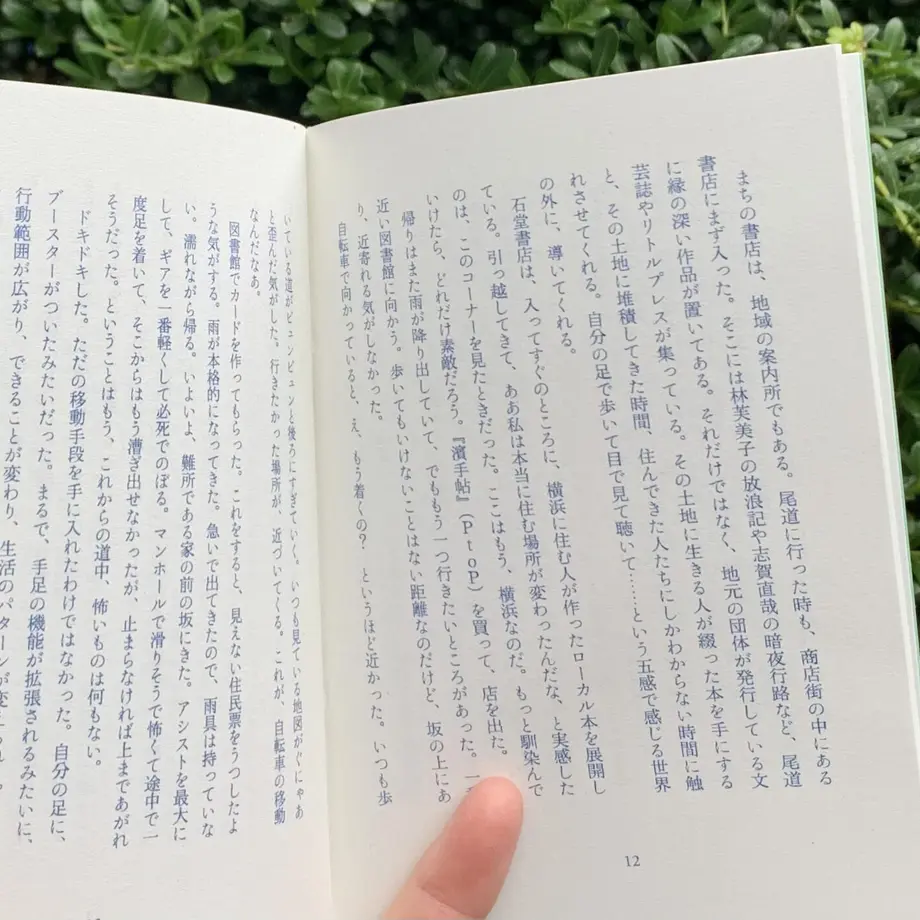 まちの書店は、地域の案内所でもある。尾道に行った時も、商店街の中にある
書店にまず入った。そこには林芙美子の放浪記や志賀直哉の暗夜行路など、尾道
に縁の深い作品が置いてある。それだけではなく、地元の団体が発行している文
芸誌やリトルプレスが集っている。その土地に生きる人が綴った本を手にする
と、その土地に堆積してきた時間、住んできた人たちにしかわからない時間に触
れさせてくれる。自分の足で歩いて目で見て聴いて……という五感で感じる世界
の外に、導いてくれる。
石堂書店は、入ってすぐのところに、横浜に住む人が作ったローカル本を展開し
ている。引っ越してきて、ああ私は本当に住む場所が変わったんだな、と実感した
のは、このコーナーを見たときだった。ここはもう、横浜なのだ。もっと馴染んで
いけたら、どれだけ素敵だろう。『濱手帖』(PtoP)を買って、店を出た。
帰りはまた雨が降り出していて、でももう一つ行きたいところがあった。一
近い図書館に向かう。歩いてもいけないことはない距離なのだけど、坂の上にあ
り、近寄れる気がしなかった。
自転車で向かっていると、え、もう着くの?というほど近かった。いつも歩
いている道がビュンビュンと後ろにすぎていく。いつも見ている地図がぐにゃあ
と歪んだ気がした。行きたかった場所が、近づいてくる。これが、自転車の移動
なんだなあ。
図書館でカードを作ってもらった。これをすると、見えない住民票をうつしたよ
うな気がする。雨が本格的になってきた。急いで出てきたので、雨具は持っていな
い。濡れながら帰る。いよいよ、難所である家の前の坂にきた。アシストを最大に
して、ギアを一番軽くして必死でのぼる。マンホールで滑りそうで怖くて途中で一
度足を着いて、そこからはもう漕ぎ出せなかったが、止まらなければ上まであがれ
そうだった。ということはもう、これからの道中、怖いものは何もない。
ドキドキした。ただの移動手段を手に入れたわけではなかった。自分の足に、
ブースターがついたみたいだった。まるで、手足の機能が拡張されるみたいに、
行動範囲が広がり、できることが変わり、生活のパターンが変
12